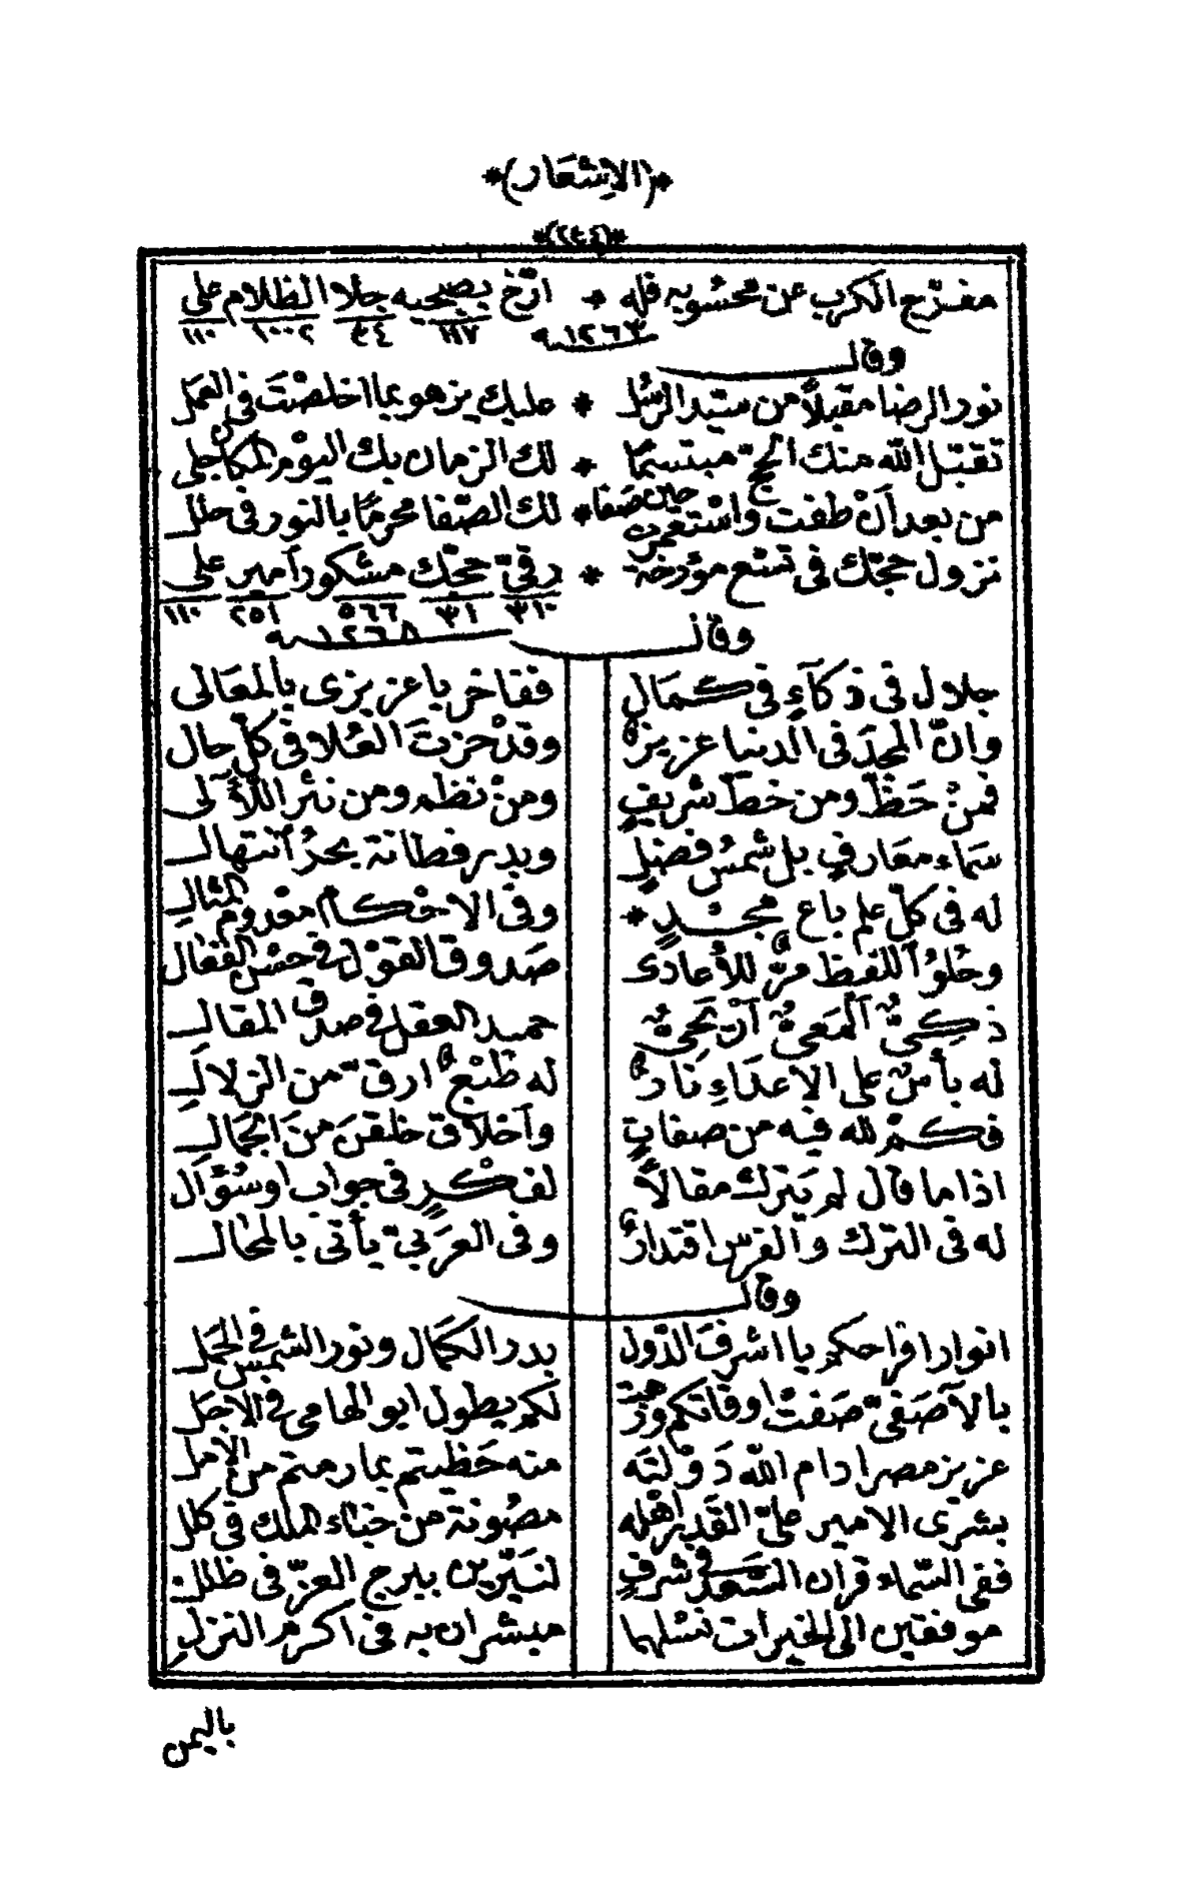 *(الاشعار)*
*(٢٣٤)*
مفرّج الكرب عن محسوبه قله * ارّخ بصبحيه جلا الظلام على
١٢٦٣ ١١٧ ٣٤ ١٠٠٢ ١١٠
وقال
نور الرضا مقبلاً من سيّد الرسُل * عليك يزهو بما اخلصْتَ فى العمل
تقبّل الله منك الحجّ مبتسمًا * لك الزمان بك اليوْم المكان جلى
من بعد اَنْ طفت واسْتغفرت حين صفا * لك الصّفا محرمًا بالنور فى حلل
نزول حجّك فى تسْع مؤرخة * رقىّ حجّك مشكور امير على
٣١٠ ٣١ ٥٦٦ ٢٥١ ١١٠
وقال ١٢٦٨
جلال فى ذكآءٍ فى كمَالٍ ففاخر يا عزيزى بالمعَالى
وانّ المجدَ فى الدنيا عزيزٌ وقدْ حزتَ العُلا فى كلّ حال
فمنْ حَظّ ومن خطّ شريفٍ ومنْ نظم ومن نثر اللآلى
سَماء معَارفٍ بل شمسُ فضلٍ وبدر فطانة بحرُ انتهال
له فى كلّ علم باع مجْدٍ * وفى الاحْكام معْدوم المثال
وحُلوُ اللفظ مرٌّ للأعادى صَدوق القوْل فى حسْن الفعَال
ذكىٌّ اَلمعىٌّ اَرْيحىٌّ حميد العقل فى صدق المقال
له بأسٌ على الاعدَاءِ نارٌ له طبْعٌ ارقّ من الزلال
فكمْ لله فيه من صفاتٍ وأخلاق خلقنَ منَ الجمَال
اذا ما قال لم يَترك مقالاً لفكْرٍ فى جواب او سُؤال
له فى الترك والفرس اقتدارٌ وفى العرَبىّ يأتى بالمحَال
وقال
انوار افراحكم يا اشرفَ الدّول بدر الكمَال ونور الشمْس فى الحمَل
بالآصَفىّ صَفتْ اوقاتكم وزهَتْ لكم بطول ابو الهامى فى الاجَل
عزيز مصر ادام الله دَوْلتَه منه حَظيتم بما رمتم من الامل
بشرَى الامير علىّ القَدر اهْله مصُونة من خباء الملك فى كلل
ففى السّماء قران السّعد فى شرفٍ لنيّرين ببرج العزّ فى ظلل
موفقين الى الخيرات نسْلهما مبشران به فى اكرم النزل
باليمن